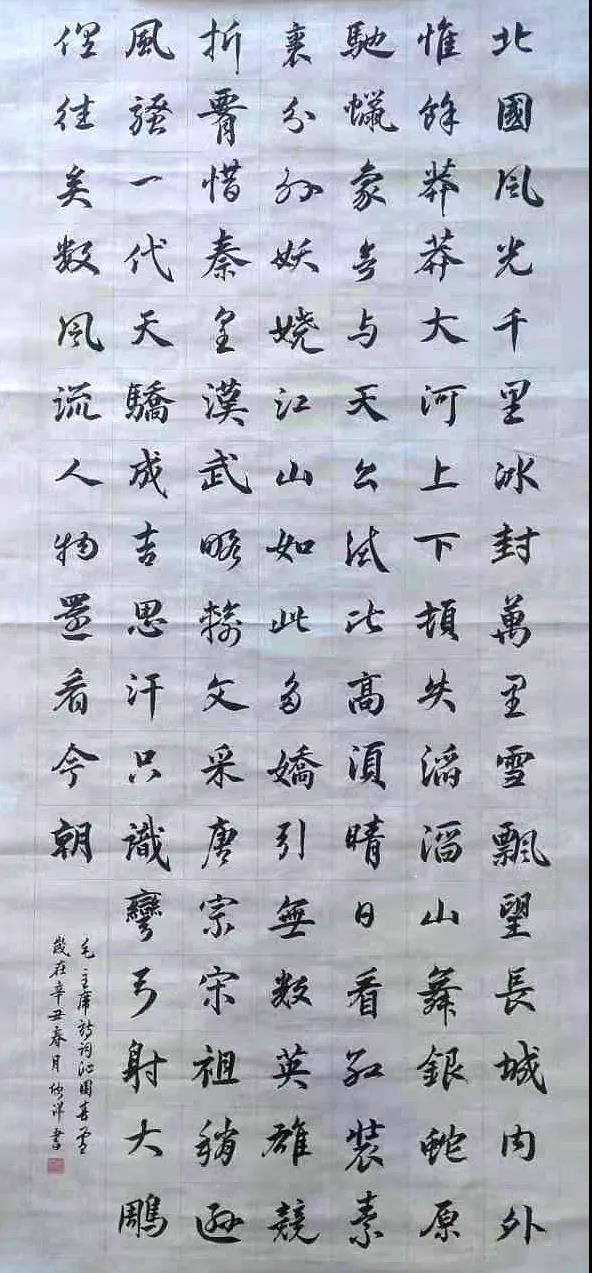 北國風光千里冰封萬里雪飄望長城内外
惟餘莽莽大河上下頓失滔滔山舞銀蛇原
馳蠟象无与天公试比高須晴日看红装素
裹分外妖嬈江山如此多嬌引無数英雄競
折腰惜秦皇漢武略輸文采唐宗宋祖稍遜
風騷一代天驕成吉思汗只識彎弓射大鵰
俱往矣数風流人物還看今朝
毛主席詩詞沁園春雪
歲在辛丑春月書